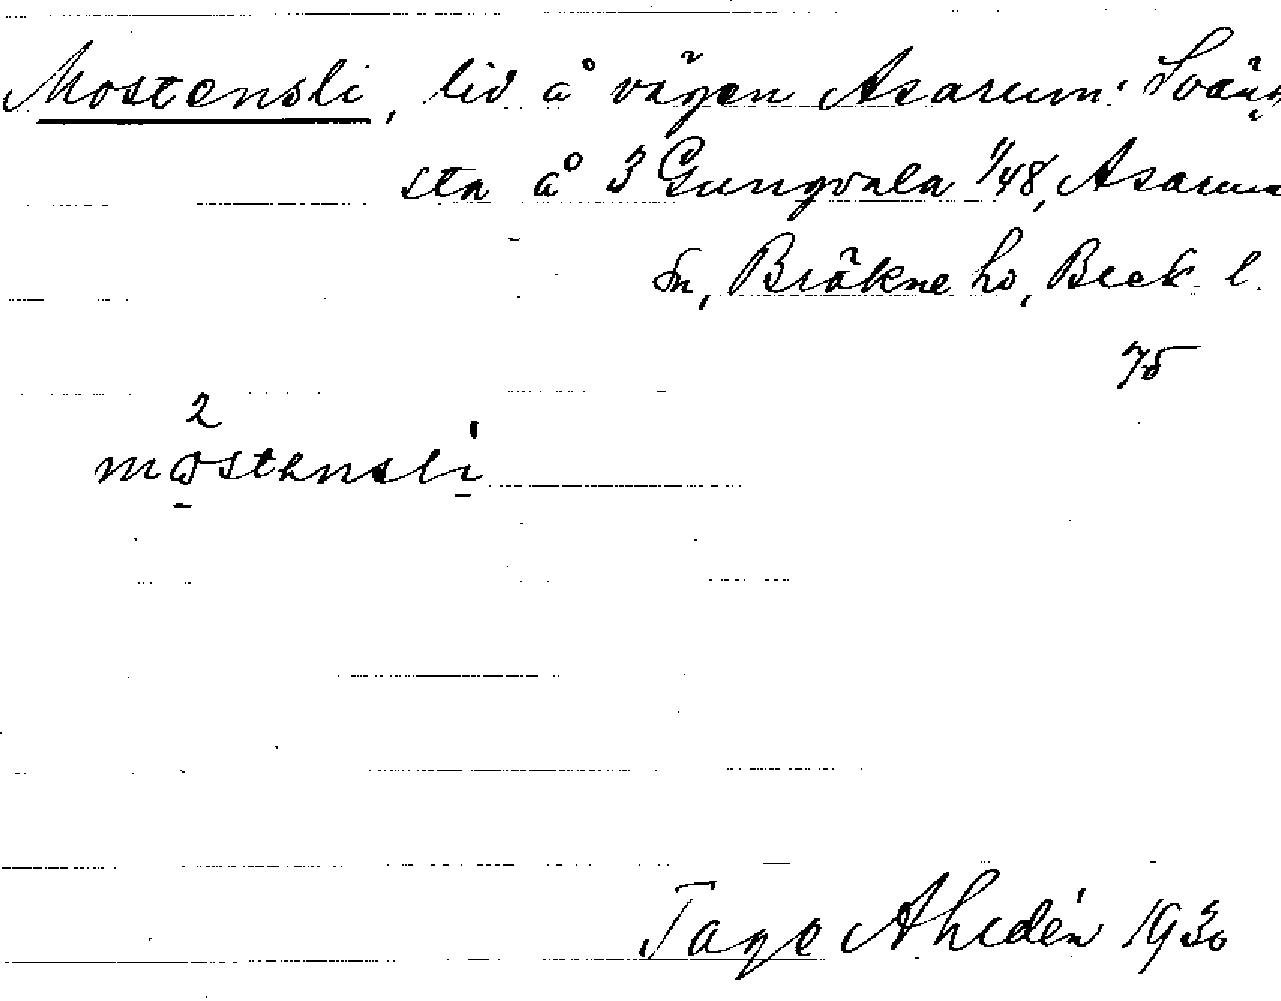 Mostensli, lid å vägen Asarum: Sväng
sta å 3 Gungvala 1/48, Asarum
sn, Bräkne hd, Blek. l.
75
2
mostensli
Tage Ahldén 1930